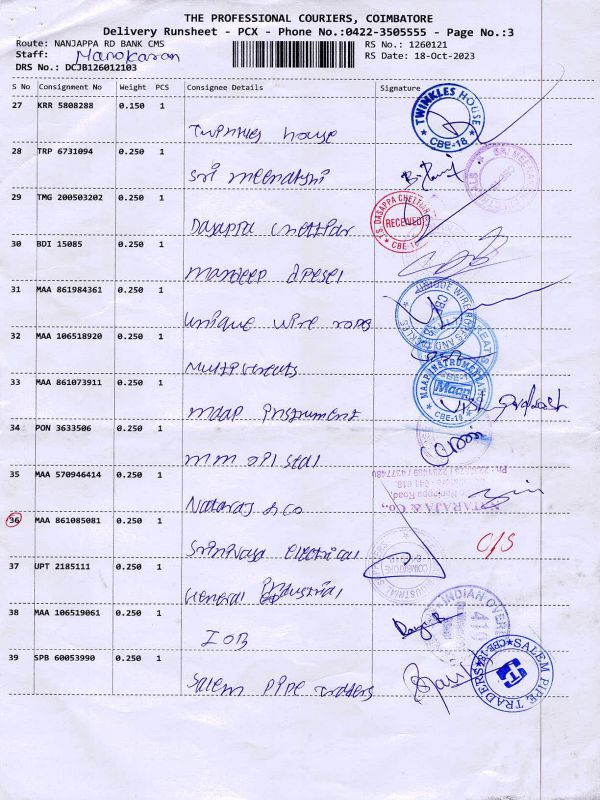 THE PROFESSIONAL COURIERS, COIMBATORE
Delivery Runsheet - PCX - Phone No.:0422-3505555 - Page No.:3
Route: NANJAPPA RD BANK CMS RS No.: 1260121
Staff: Manokaran RS Date: 18-Oct-2023
DRS No.: DCJB126012103
S No Consignment No Weight PCS Consignee Details Signature
27 KRR 5808288 0.150 1
Twinkles house
TWINKLES HOUSE
CBE-18
28 TRP 6731094 0.250 1
Sri meenatshi
29 TMG 200503202 0.250 1
Dasappa Chettiar
T.S. DASAPPA CHETTIAR
RECEIVED
CBE-18
30 BDI 15085 0.250 1
mandeep diesel
31 MAA 861984361 0.250 1
unique wire ropes
UNIQUE WIRE ROPES AND TACKLES
CBE
32 MAA 106518920 0.250 1
Multi sweats
33 MAA 861073911 0.250 1
maap instrument
MAAP INSTRUMENT
Maap
CBE-18
34 PON 3633506 0.250 1
mm optical
35 MAA 570946414 0.250 1
Nataraj & co
NATARAJA & CO.,
Nanjappa Road,
36 MAA 861085081 0.250 1
Srinivasa electrical
C/S
37 UPT 2185111 0.250 1
General industrial
COIMBATORE
INDUSTRIAL
38 MAA 106519061 0.250 1
IOB
INDIAN OVER
39 SPB 60053990 0.250 1
Salem pipe traders
SALEM PIPE TRADERS
CBE-18